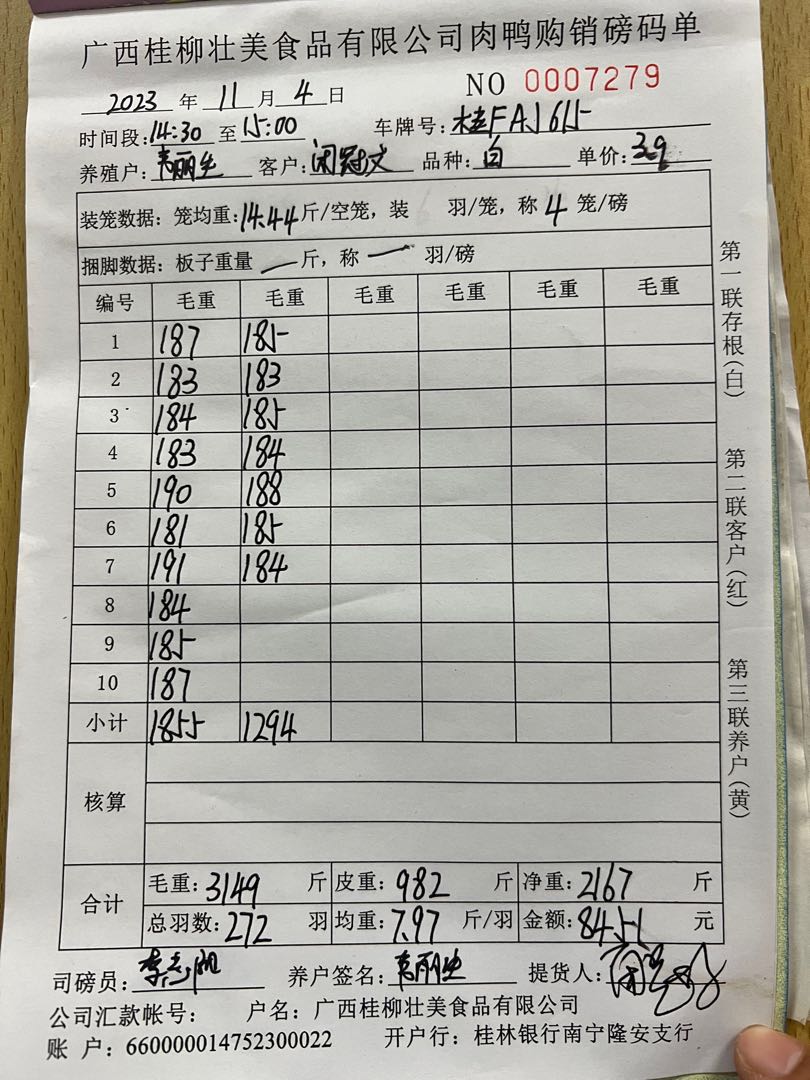 广西桂柳壮美食品有限公司肉鸭购销磅码单
2023 年 11 月 4 日 NO 0007279
时间段:14:30 至 15:00 车牌号:桂FAJ615
养殖户:韦丽生 客户:闭冠文 品种:白 单价:3.9
装笼数据:笼均重:14.44斤/空笼,装 羽/笼,称 4 笼/磅
捆脚数据:板子重量 — 斤,称 — 羽/磅
编号 毛重 毛重 毛重 毛重 毛重 毛重
1 187 185
2 183 183
3 184 185
4 183 184
5 190 188
6 181 185
7 191 184
8 184
9 185
10 187
小计 1855 1294
核算
合计 毛重:3149 斤 皮重:982 斤 净重:2167 斤
总羽数:272 羽 均重:7.97 斤/羽 金额:8451 元
司磅员: 养户签名:韦丽生 提货人:
公司汇款帐号: 户名:广西桂柳壮美食品有限公司
账 户:660000014752300022 开户行:桂林银行南宁隆安支行
第一联存根(白) 第二联客户(红) 第三联养户(黄)